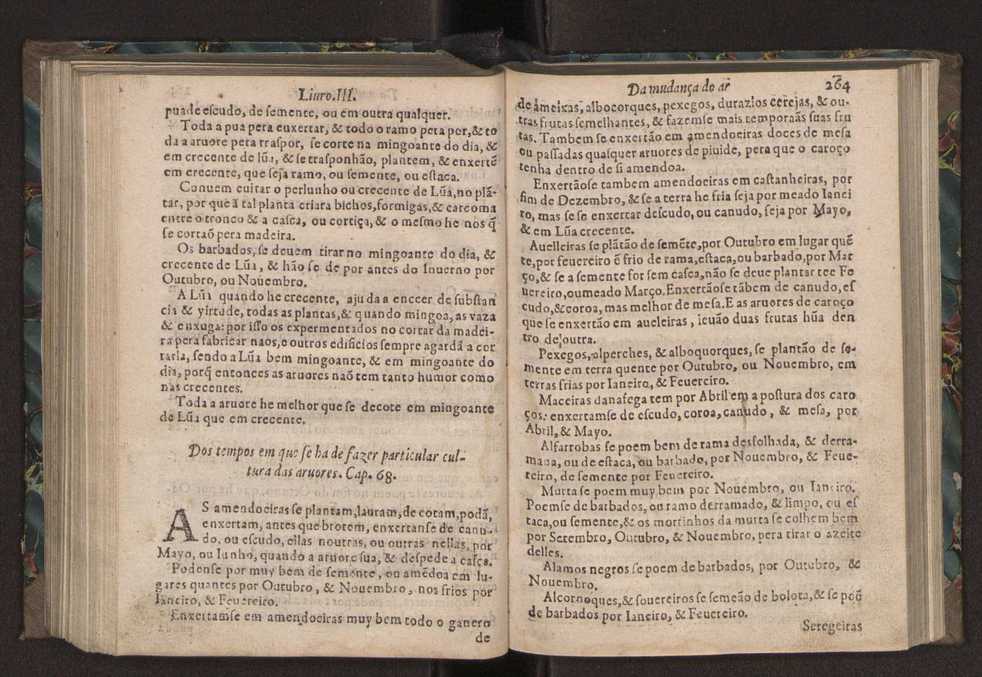 Liuro.III.
pua de escudo, de semente, ou em outra qualquer.
Toda a pua pera enxertar, & todo o ramo pera por,& to
da a aruore pera traspor, se corte na mingoante do dia, &
em crecente de lũa, & se trasponhão, plantem, & enxertẽ
em crecente, que seja ramo, ou semente, ou estaca.
Conuem euitar o perlunho ou crecente de Lũa,no plã-
tar, por que ã tal planta criara bichos,formigas,& careoma
entre o tronco & a casca, ou cortiça, & o mesmo he nos q̃
se cortaõ pera madeira.
Os barbados, se deuem tirar no mingoante do dia, &
crecente de Lũa, & hão se de por antes do Inuerno por
Outubro, ou Nouembro.
A Lũa quando he crecente, ajuda a encher de substan
cia & virtude, todas as plantas,& quando mingoa, as vaza
& enxuga: por isso os expermentados no cortar da madei-
ra pera fabricar naos, e outros edificios sempre agardã a cor
tarla, sendo a Lũa bem mingoante, & em mingoante do
dia, porq̃ entonces as aruores naõ tem tanto humor como
nas crecentes.
Toda a aruore he melhor que se decote em mingoante
de Lũa que em crecente.
Dos tempos em que se ha de fazer particular cul-
tura das aruores. Cap. 68.
AS amendoeiras se plantam,lauram,de cotam,podã,
enxertam, antes que brotem, enxertanse de canu-
do, ou escudo, ellas noutras, ou outras nellas, por
Mayo, ou Iunho, quando a aruore sua, & despede a casca.
Podense por muy bem de semente, ou amẽdoa em lu-
gares quantes por Outubro, & Nouembro, nos frios por
Ianeiro, & Feuereiro.
Enxertamse em amendoeiras muy bem todo o genero
de
Da mudança do ar 264
de ameixas, albocorques, pexegos, durazios cerejas, & ou-
tras frutas semelhantes, & fazemse mais temporaãs suas fru
tas. Tambem se enxertão em amendoeiras doces de mesa
ou passadas quasquer aruores de piuide, pera que o caroço
tenha dentro de si amendoa.
Enxertãose tambem amendoeiras em castanheiras, por
fim de Dezembro, & se a terra he fria seja por meado Ianei
ro, mas se se enxertar descudo, ou canudo, seja por Mayo,
& em Lũa crecente.
Auelleiras se plãtão de semẽte,por Outubro em lugar quẽ
te,por feuereiro ẽ frio de rama,estaca,ou barbado,por Mar
ço,& se a semente for sem casca,não se deue plantar tee Fe
uereiro,oumeado Março.Enxertãose tãbem de canudo,es
cudo,&coroa, mas melhor de mesa.E as aruores de caroço
que se enxertão em aueleiras, leuão duas frutas hũa den
tro de outra.
Pexegos, alperches, & alboquorques, se plantão de se-
mente em terra quente por Outubro, ou Nouembro, em
terras frias por Ianeiro, & Feuereiro.
Maceiras danafega tem por Abril em a postura dos caro
ços: enxertamse de escudo, coroa, canudo, & mesa, por
Abril, & Mayo.
Alfarrobas se poem bem de rama desfolhada, & derra-
mada, ou de estaca, ou barbado, por Nouembro, & Feue-
reiro, de semente por Feuereiro.
Murta se poem muy bem por Nouembro, ou Ianeiro.
Poemse de barbados, ou ramo derramado, & limpo, ou es
taca,ou semente,& os mortinhos da murta se colhem bem
por Setembro, Outubro, & Nouembro, pera tirar o azeite
delles.
Alamos negros se poem de barbados, por Outubro, &
Nouembro.
Alcornoques,& souereiros se semeão de bolota,& se poẽ
de barbados por Ianeiro, & Feuereiro.
Seregeiras